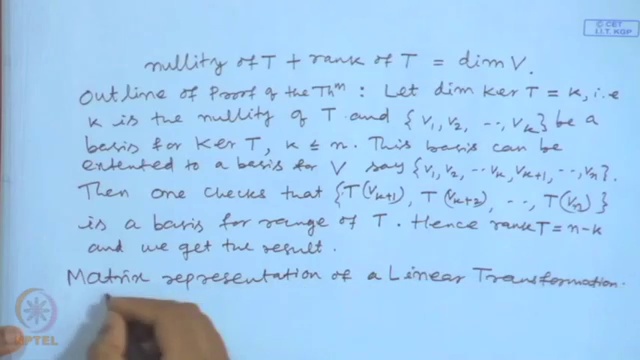 © CET
I.I.T. KGP
nullity of T + rank of T = dim V.
Outline of Proof of the Thm : Let dim ker T = k, i.e
k is the nullity of T and {v1, v2, ..., vk} be a
basis for Ker T, k ≤ n. This basis can be
extented to a basis for V say {v1, v2, ... vk, vk+1, ..., vn}.
Then one checks that {T(vk+1), T(vk+2), ..., T(vn)}
is a basis for range of T. Hence rank T = n-k
and we get the result.
Matrix representation of a Linear Transformation.
NPTEL